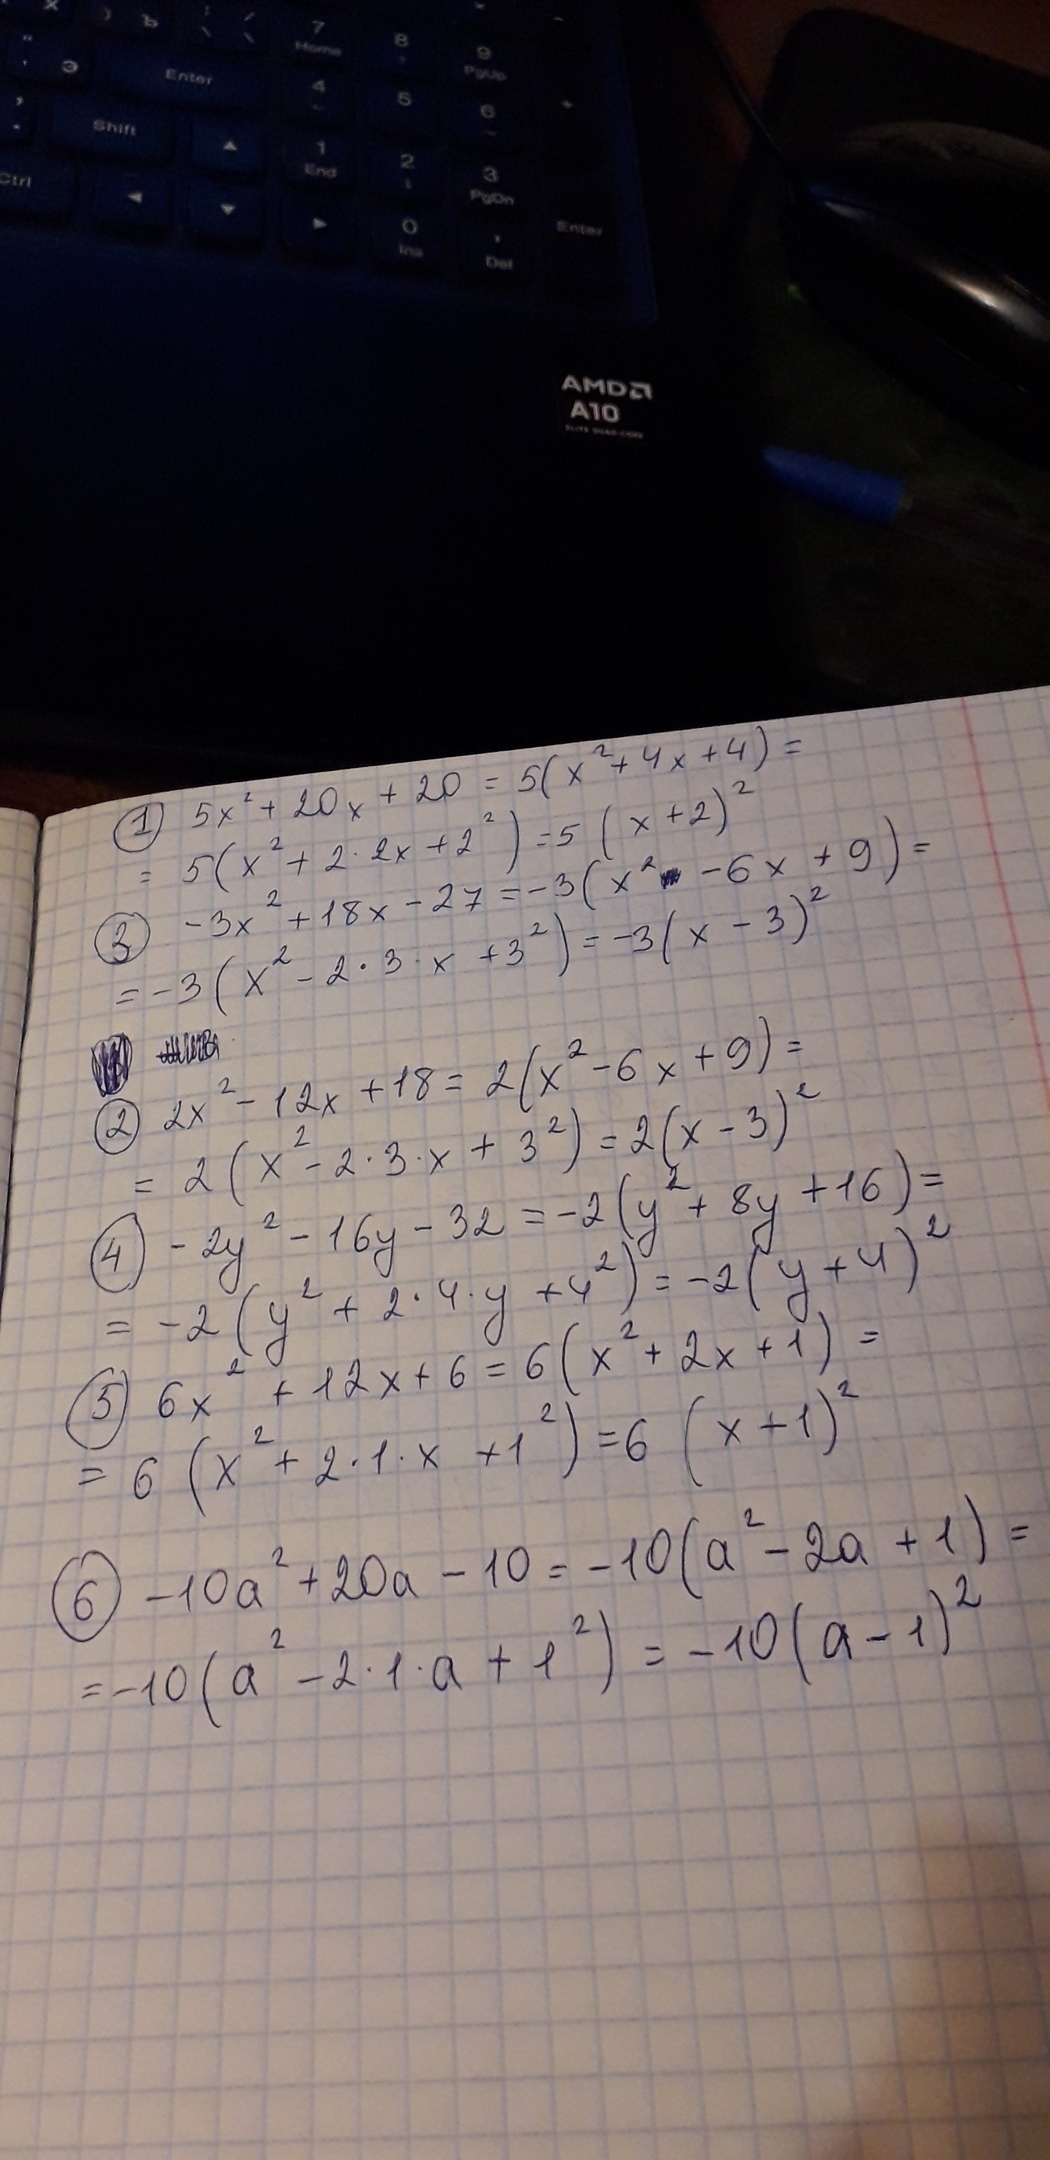 x ) ъ
7 8 9
Home PgUp
Э Enter 4 5 6
Shift 1 2 3
End PgDn
Ctrl 0 , Enter
Ins Del
AMD
A10
ELITE QUAD-CORE
① 5x² + 20x + 20 = 5(x² + 4x + 4) =
= 5(x² + 2·2x + 2²) = 5(x + 2)²
③ -3x² + 18x - 27 = -3(x² - 6x + 9) =
= -3(x² - 2·3·x + 3²) = -3(x - 3)²
② 2x² - 12x + 18 = 2(x² - 6x + 9) =
= 2(x² - 2·3·x + 3²) = 2(x - 3)²
④ -2y² - 16y - 32 = -2(y² + 8y + 16) =
= -2(y² + 2·4·y + 4²) = -2(y + 4)²
⑤ 6x² + 12x + 6 = 6(x² + 2x + 1) =
= 6(x² + 2·1·x + 1²) = 6(x + 1)²
⑥ -10a² + 20a - 10 = -10(a² - 2a + 1) =
= -10(a² - 2·1·a + 1²) = -10(a - 1)²